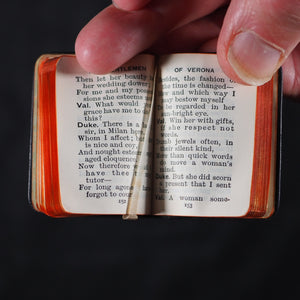 TLEMEN
Then let her beauty
her wedding dower;
For me and my
sions she esteems
Val. What would
grace have me to do
this?
Duke. There is a
sir, in Milan here
Whom I affect; but
is nice and coy,
And nought esteems
aged eloquence:
Now therefore
have thee my
tutor—
For long agone I
forgot to cou
152
OF VERONA
Besides, the fashion of
the time is changed—
may bestow myself
to be regarded in her
sun-bright eye.
Val. Win her with gifts,
if she respect not
words.
Dumb jewels often, in
their silent kind,
More than quick words
do move a woman's
mind.
Duke. But she did scorn
a present that I sent
her.
Val. A woman some-
153